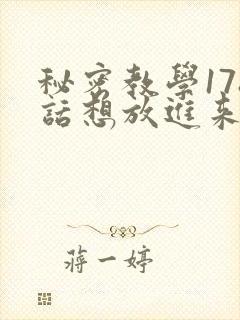 秘密教學17
話想放進來
蔣一婷